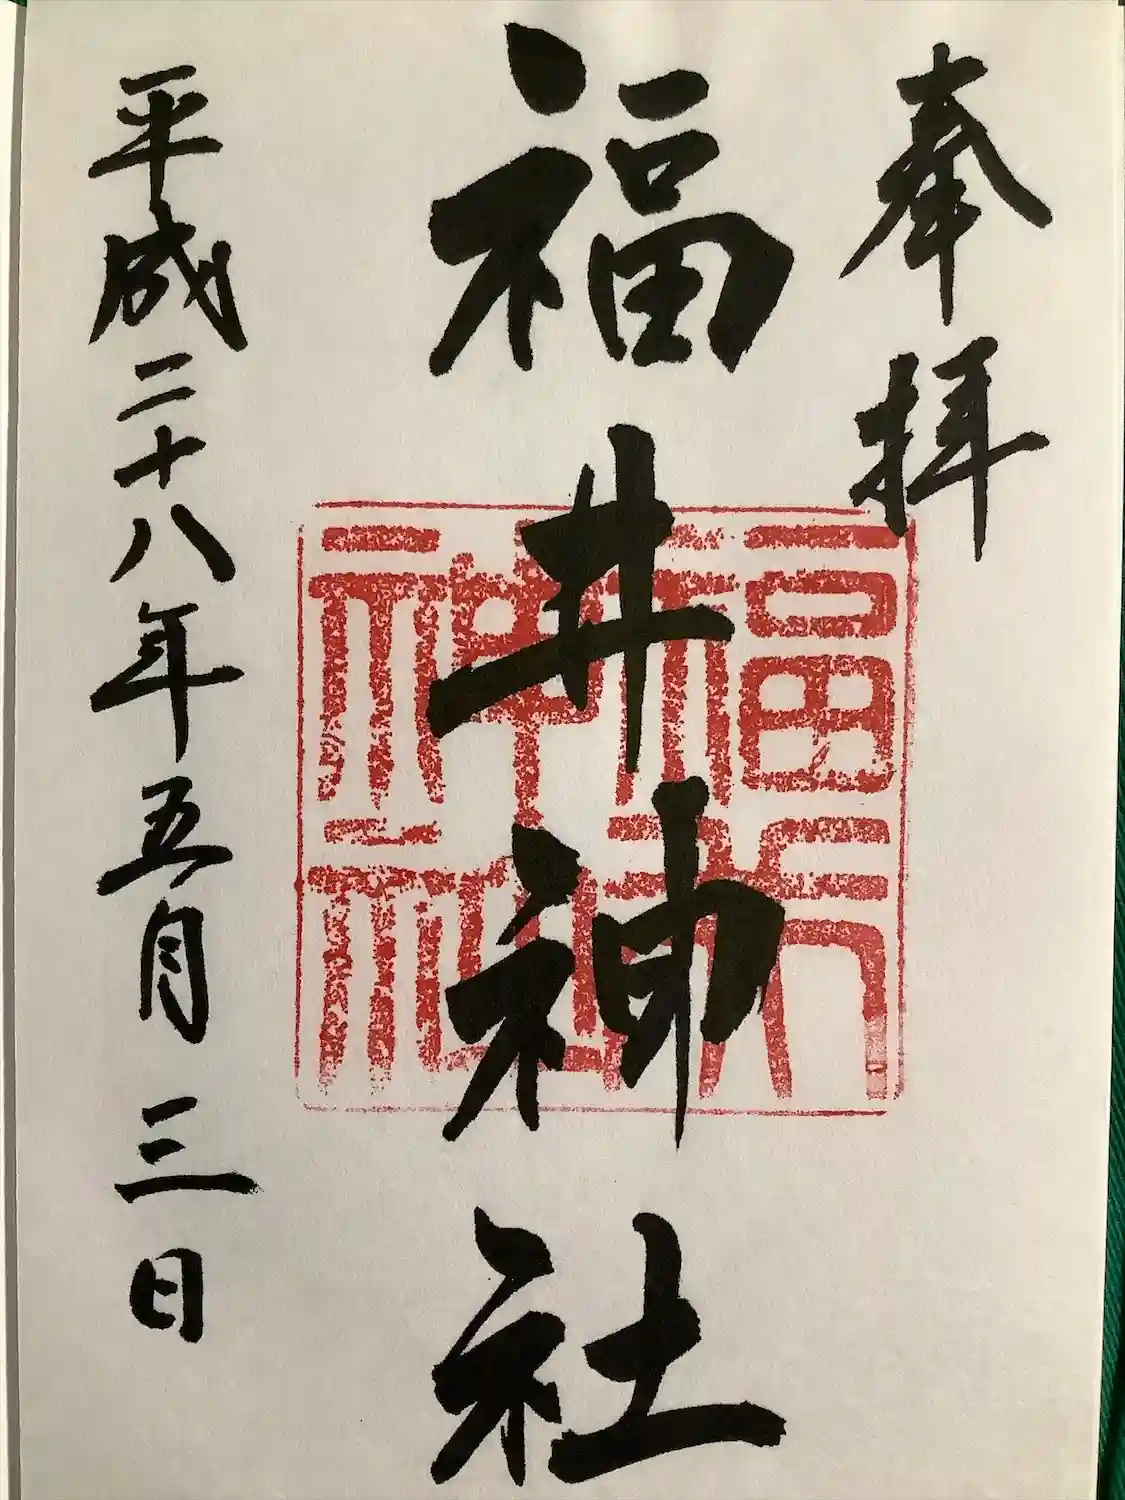 奉拝
福井神社
平成二十八年五月三日
福井神社